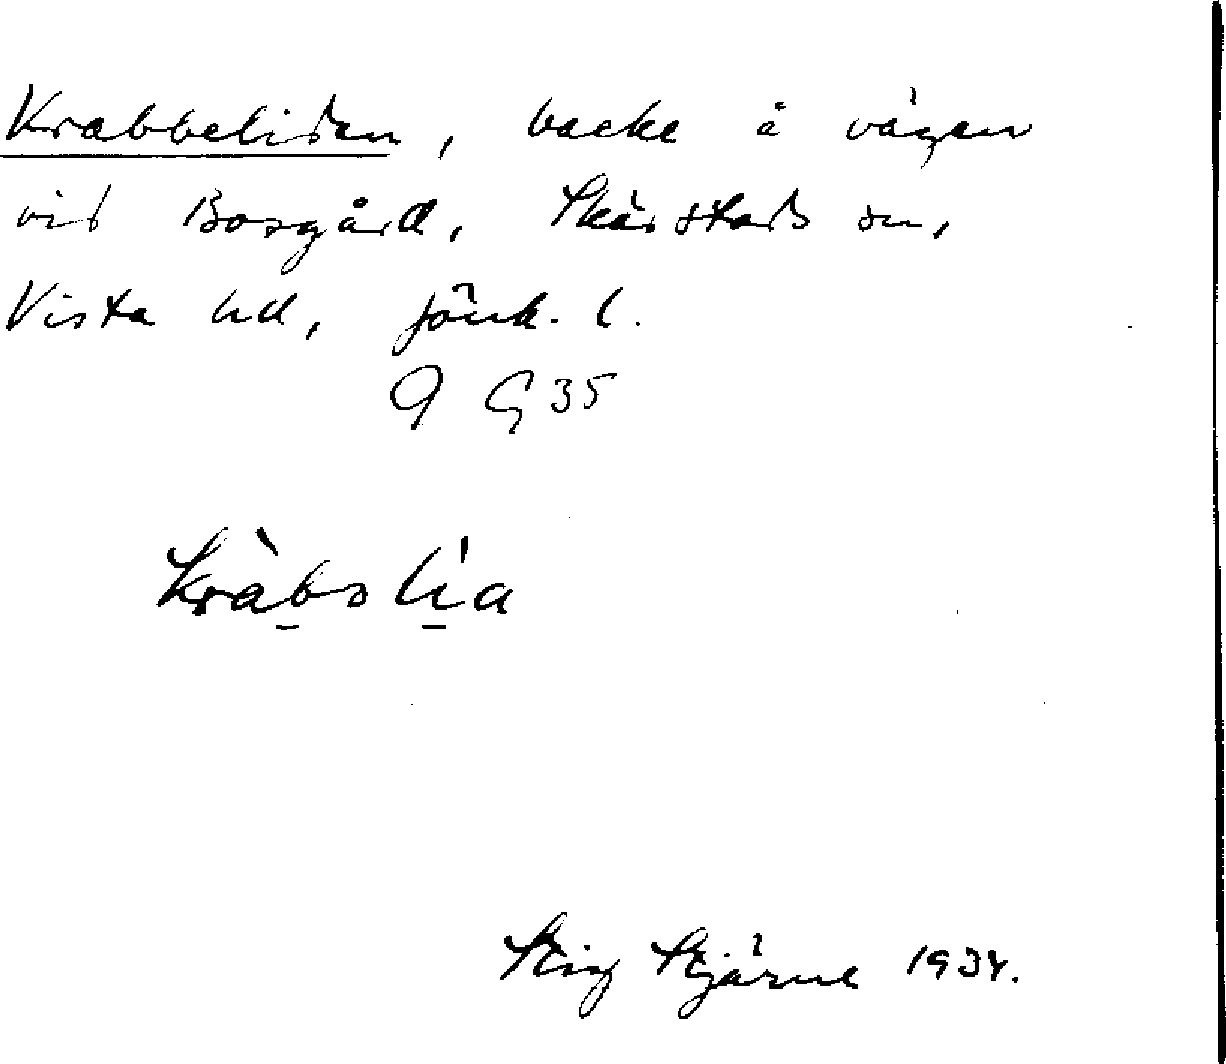 Krabbeliden, backe å vägen
vid Bosgård, Skärstads sn,
Vista hd, Jönk. l.
9 G 35
kràbolìa
Stig Stjärne 1934.